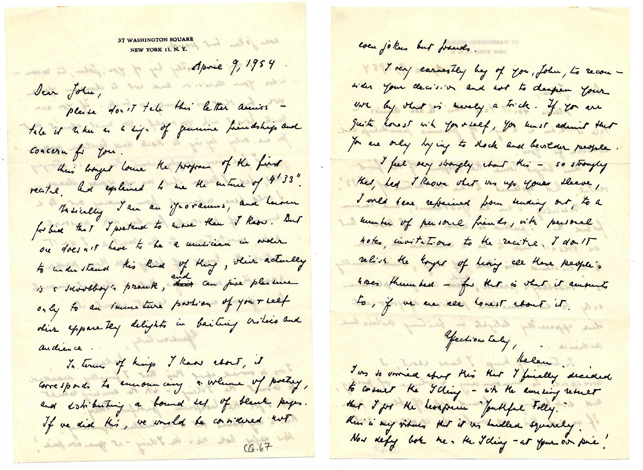 37 WASHINGTON SQUARE
NEW YORK 11, N. Y.
April 9, 1954
Dear John,
please don't take this letter amiss –
take it rather as a sign of genuine friendship and
concern for you.
brought home the program of the first
recital. And explained to me the nature of 4' 33".
Basically I am an ignoramus, and heaven
forbid that I pretend to more than I know. But
one doesn't have to be a musician in order
to understand this kind of thing, which actually
is a schoolboy's prank, and can give pleasure
only to an immature portion of yourself
which apparently delights in baiting critics and
audience.
In terms of things I know about, it
corresponds to announcing a volume of poetry,
and distributing a bound set of blank pages.
If we did this, we would be considered not
CG.67
even jokers but frauds.
I very earnestly beg of you, John, to recon-
sider your decision and not to cheapen your
work by what is merely a trick. If you are
quite honest with yourself, you must admit that
you are only trying to shock and bewilder people.
I feel very strongly about this – so strongly
that, had I known what was up your sleeve,
I would have refrained from sending out, to a
number of personal friends, with personal
notes, invitations to the recital. I don't
relish the thought of having all those people's
noses thumbed – for that is what it amounts
to, if we are all honest about it.
Affectionately,
Helen
I was so worried about this that I finally decided
to consult the I Ching – with the amusing result
that I got the hexagram "Youthful Folly."
This is my
Now defy both me & the I Ching – at your own peril!